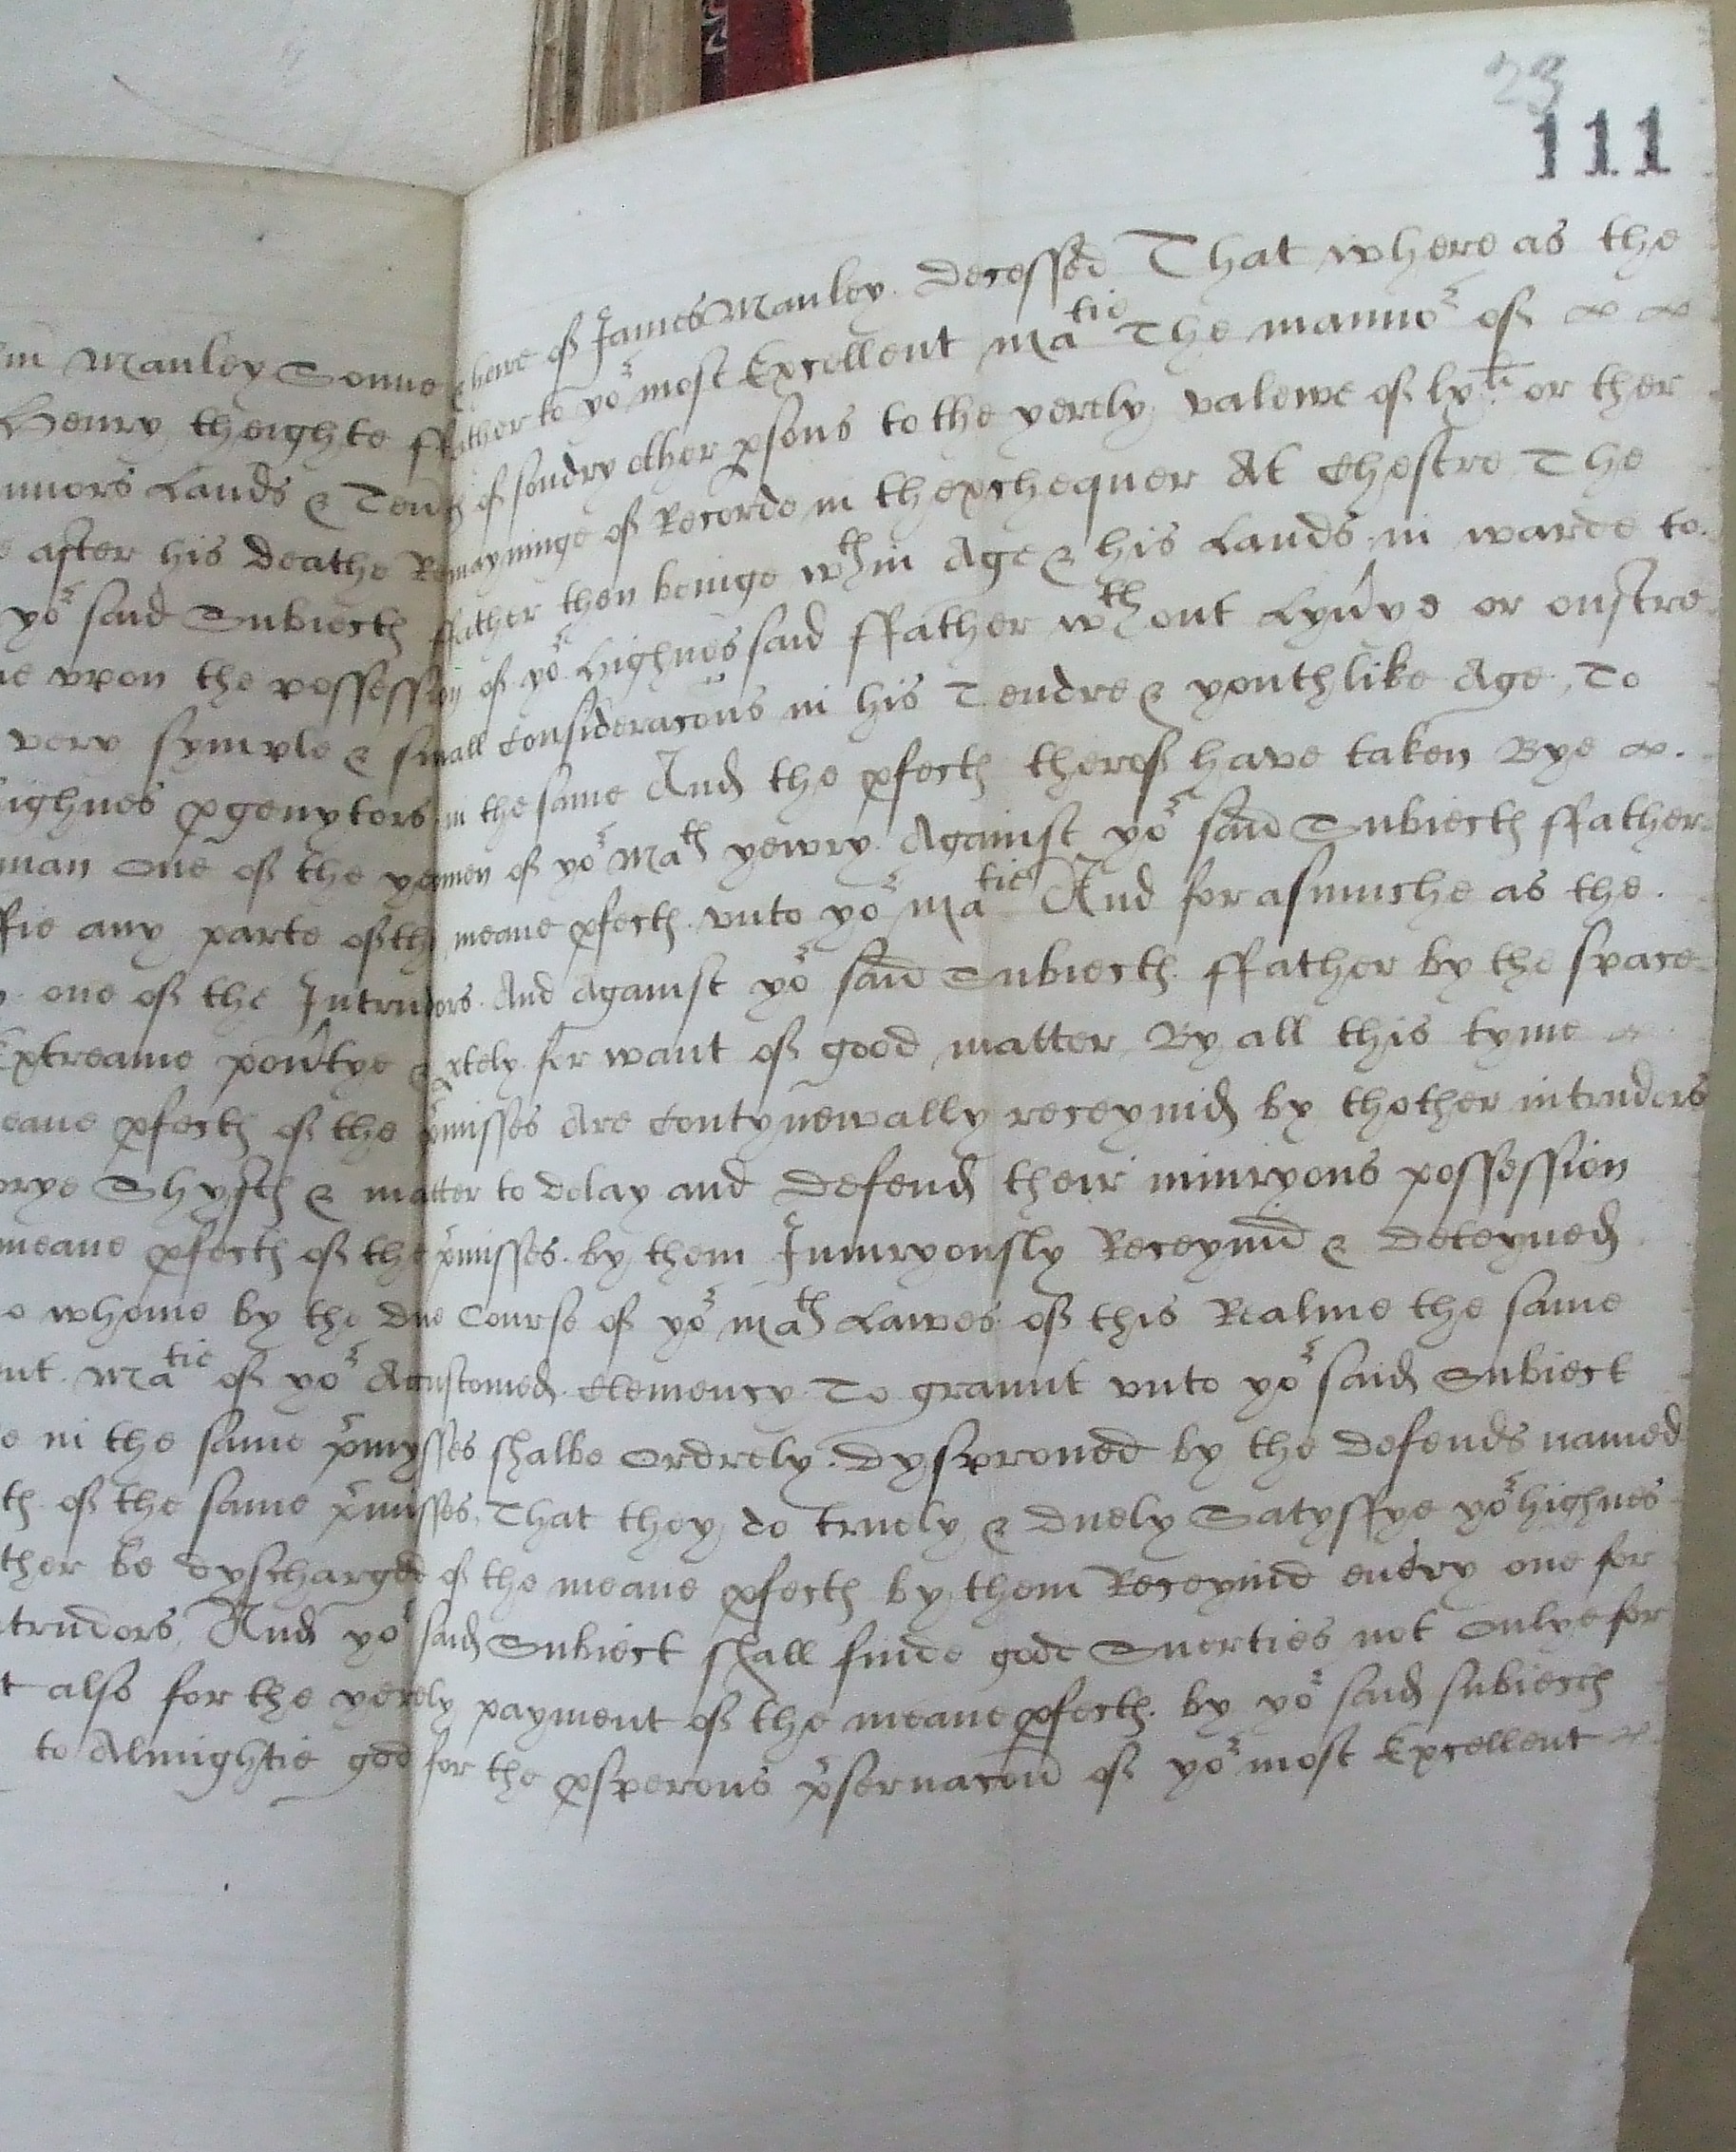 23
111
Manley Sonne & heire of James Manley decessed That where as the
Henry theighte ffather to yor most Excellent matie The mannor of
Lands & of sondry other psons to the yerely valewe of lvli or ther
after his deathe Remayninge of Recorde in thexchequer At Chestre The
yor said Subiects ffather then beinge wthin Age & his Lands in warde to
upon the possession of yor highnes said ffather wthout Lyvrye or oustre
very symple & small Consideracons in his Tendre & youthlike Age, To
highnes pgenytors in the same And the pfects therof have taken Bye
man One of the yeomen of yor Mats yewry Against yor said Subiects ffather
any parte of the meane pfects unto yor matie And for asmuche as the
one of the Intrudors And Against yor said Subiects ffather by the space
Extreame povrtye & for want of good matter By all this tyme
meane pfects of the pmisses Are Contynewally receyvid by thother intrudors
Shyfts & matter to delay and defend their iniuryous possession
meane pfects of the pmisses by them Iniuryously Receyvid & deteyned
whome by the due Course of yor mats Lawes of this Realme the same
Matie of yor Acustomed Clemency To graunt unto yor said Subiect
in the same pmysses shalbe Ordrely dysproued by the defends named
of the same pmisses, That they do truely & duely Satysffye yor highnes
be dyscharged of the meane pfects by them Receyvid every one for
Intrudors, And yor said Subiect shall finde gode Suerties not Onlye for
also for the yerely payment of the meane pfects by yor said subiects
to Almightie god for the psperous pservacon of yor most Excellent